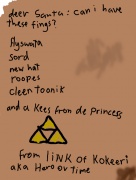 deer Santa: can i have
these fings?
flyswata
sord
new hat
roopes
cleen toonik
and a kees from de Princess
from link of Kokeeri
aka Hero ov Time